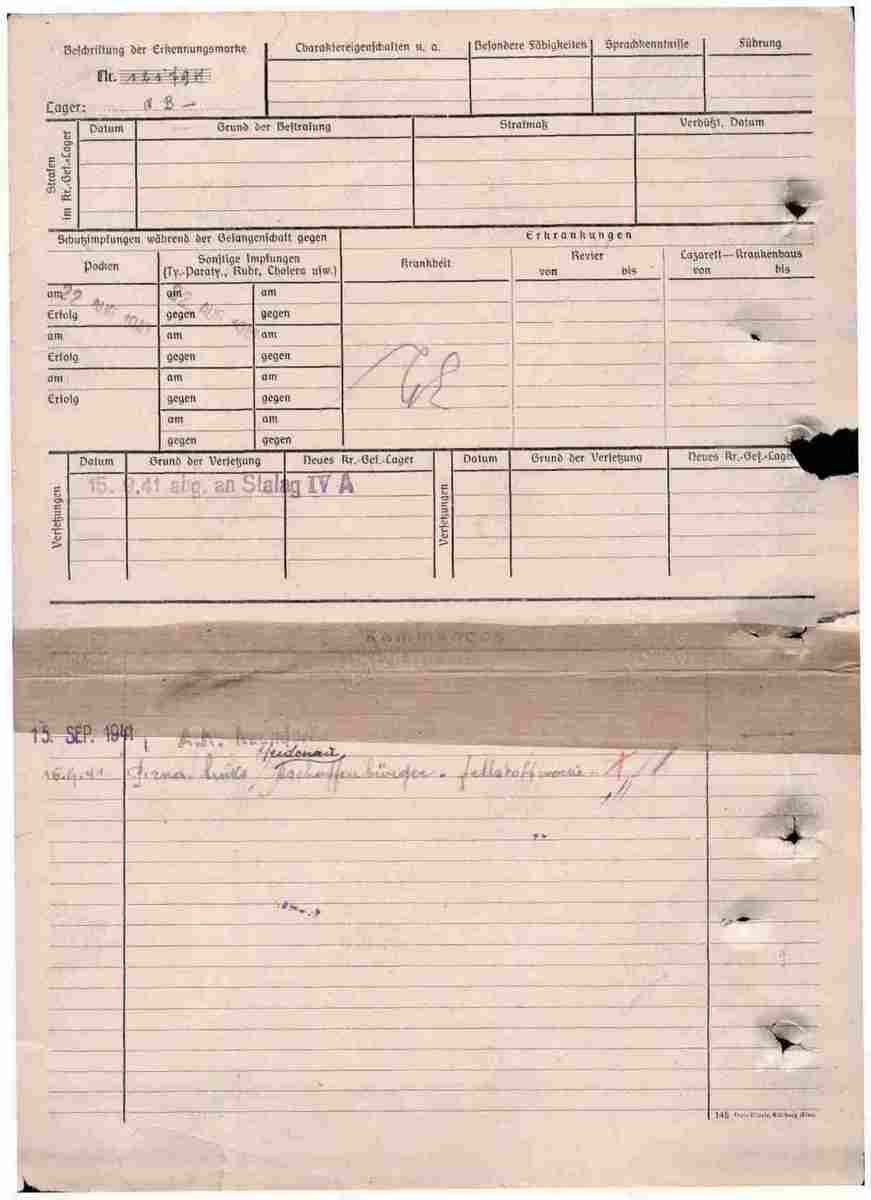 Beschriftung der Erkennungsmarke
Nr.
Lager: B –
Charaktereigenschaften u. a.
Besondere Fähigkeiten
Sprachkenntnisse
Führung
Strafen im Kr.-Gef.-Lager
Datum
Grund der Bestrafung
Strafmaß
Verbüßt, Datum
Schutzimpfungen während der Gefangenschaft gegen
Erkrankungen
Pocken
Sonstige Impfungen
(Ty.-Paraty., Ruhr, Cholera usw.)
Krankheit
Revier
von bis
Lazarett—Krankenhaus
von bis
am 22 AUG 1941 am 22 AUG 1941 am
Erfolg gegen gegen
am am am
Erfolg gegen gegen
am am am
Erfolg gegen gegen
am am
gegen gegen
Versetzungen
Datum Grund der Versetzung Neues Kr.-Gef.-Lager
Versetzungen
Datum Grund der Versetzung Neues Kr.-Gef.-Lager
15. 9.41 abg. an Stalag IV A
Kommandos
15. SEP. 1941
Heidenau
16.9.41 Pirna
145